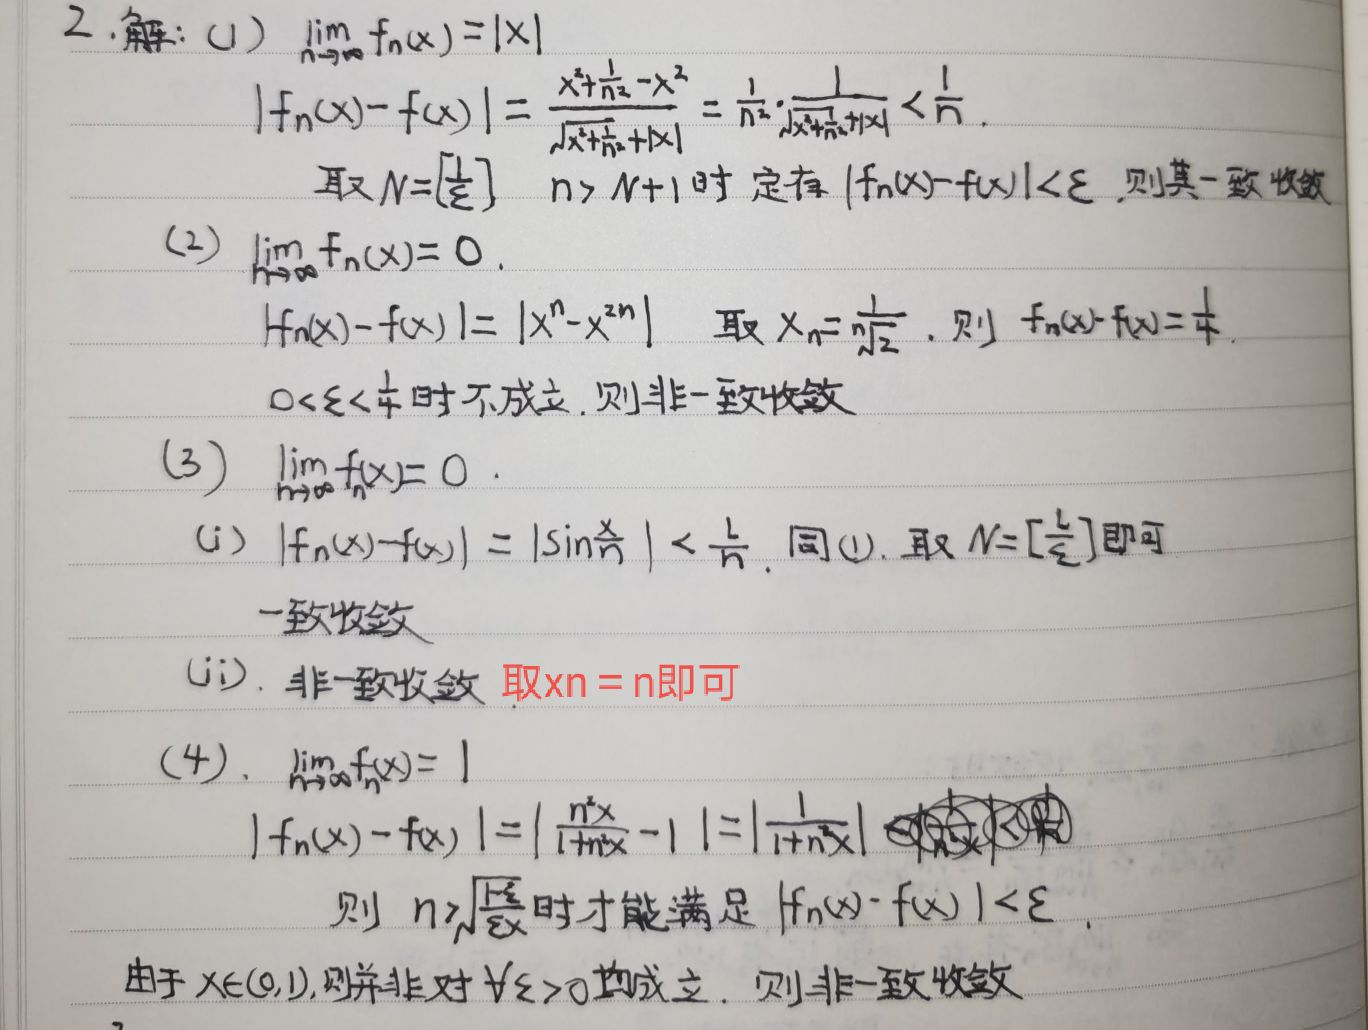 2.解:(1) lim n→∞ fn(x)=|x|
|fn(x)-f(x)|= (x²+1/n²-x²)/(√(x²+1/n²)+|x|) = 1/n²·1/(√(x²+1/n²)+|x|) < 1/n.
取N=[1/ε] n>N+1时 定有|fn(x)-f(x)|<ε.则其一致收敛
(2) lim n→∞ fn(x)=0.
|fn(x)-f(x)|=|xⁿ-x²ⁿ| 取xn=1/ⁿ√2.则 fn(x)-f(x)=1/4.
0<ε<1/4时不成立.则非一致收敛
(3) lim n→∞ fn(x)=0.
(i) |fn(x)-f(x)|=|sin x/n|<L/n.同(1).取N=[L/ε]即可
一致收敛
(ii).非一致收敛. 取xn=n即可
(4). lim n→∞ fn(x)=1
|fn(x)-f(x)|=|n²x/(1+n²x)-1|=|1/(1+n²x)|
则 n>√((1-ε)/(εx))时才能满足|fn(x)-f(x)|<ε.
由于x∈(0,1),则并非对∀ε>0均成立.则非一致收敛